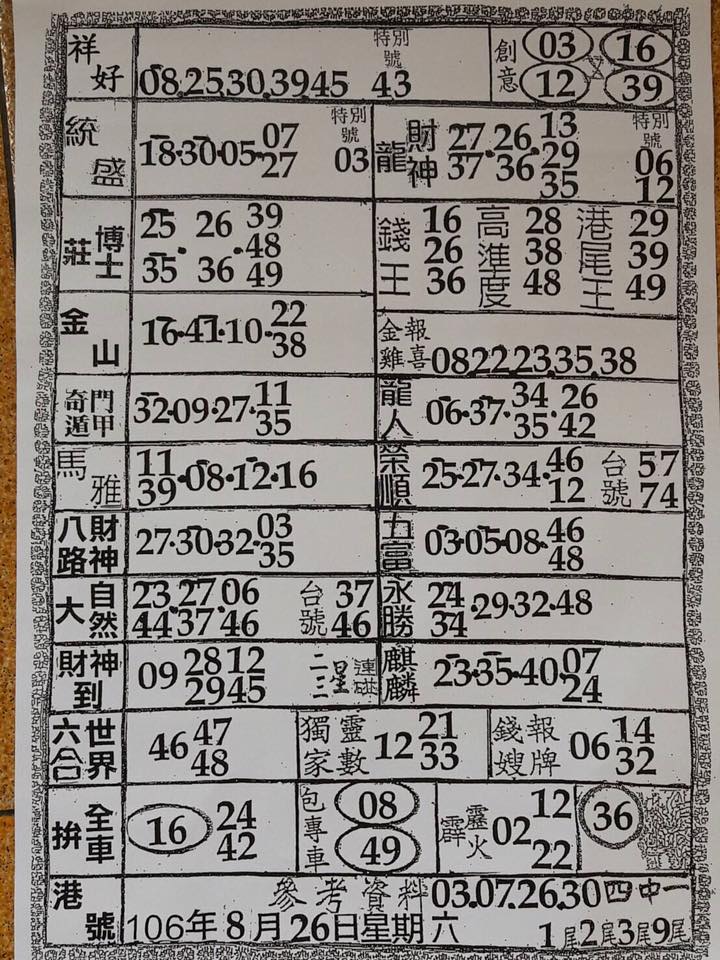 祥好 08.25.30.39.45 特別號 43 創意 03 16 12 39
統盛 18.30.05.07 27 特別號 03
龍財神 27 37.26 36.13 29 35 特別號 06 12
莊博士 25 35.26 36.39 48 49
錢王 16 26 36 高準度 28 38 48 港尾王 29 39 49
金山 16.41.10.22 38
金雞報喜 08.22.23.35.38
奇門遁甲 32.09.27.11 35
龍人 06.37.34 35.26 42
馬雅 11 39.08.12.16
榮順 25.27.34.46 12 台號 57 74
八路財神 27.30.32.03 35
五富 03.05.08.46 48
大自然 23 44.27 37.06 46 台號 37 46
永勝 24 34.29.32.48
財神到 09 28 29 12 45 二三星連碰
麒麟 23.35.40.07 24
六合世界 46 47 48
獨家靈數 12 21 33
錢嫂報牌 06 14 32
拚全車 16 24 42
包專車 08 49
霹靂火 02 12 22
36
港號 參考資料 03.07.26.30 四中一
106年8月26日星期六 1尾2尾3尾9尾